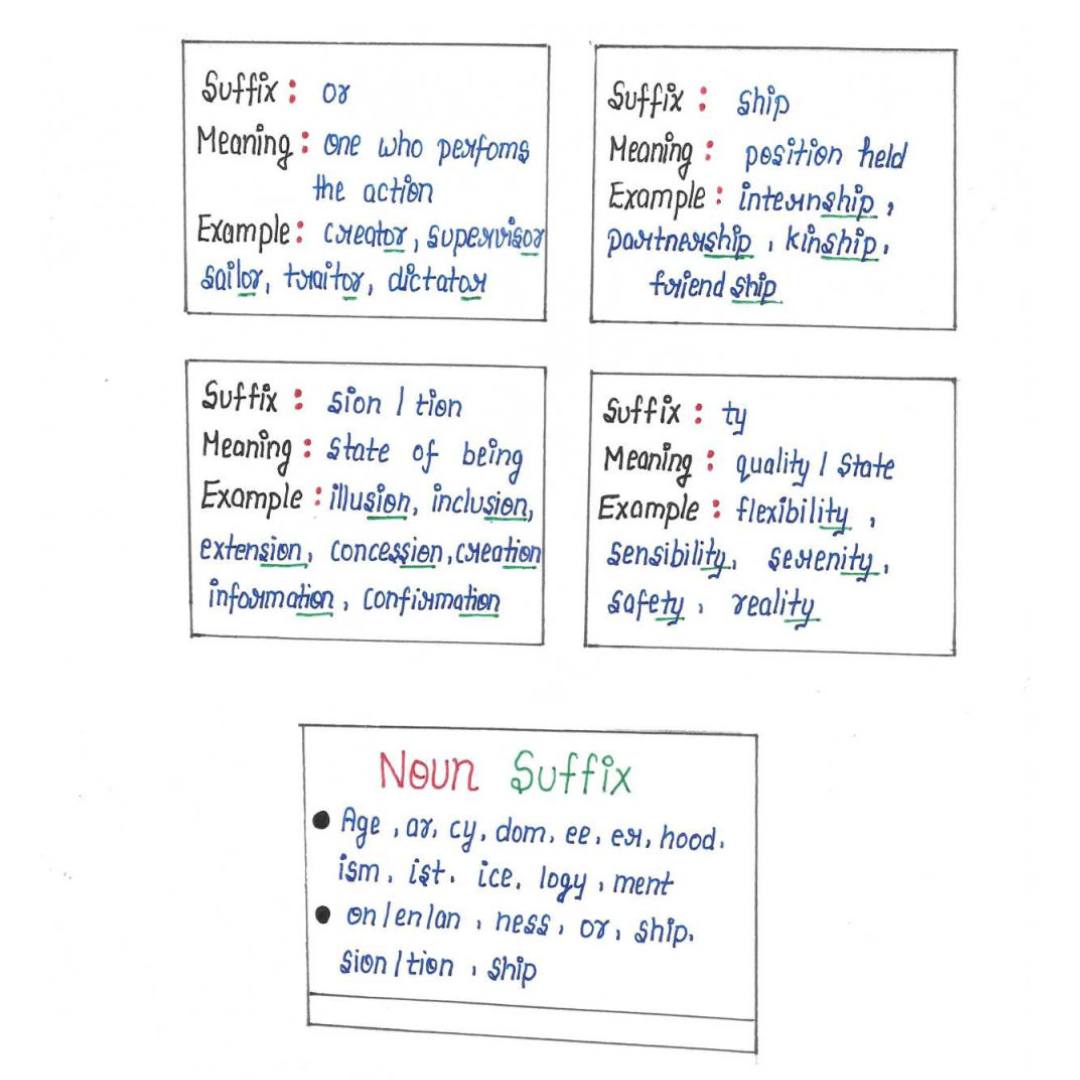 Suffix : or
Meaning : one who perfoms
the action
Example : creator, supervisor
sailor, traitor, dictator
Suffix : ship
Meaning : position held
Example : internship,
partnership, kinship,
friend ship
Suffix : sion / tion
Meaning : state of being
Example : illusion, inclusion,
extension, concession, creation
information, confirmation
Suffix : ty
Meaning : quality / State
Example : flexibility,
sensibility, serenity,
safety, reality
Noun Suffix
● Age, ar, cy, dom, ee, er, hood,
ism, ist, ice, logy, ment
● on/en/an, ness, or, ship,
sion/tion, ship